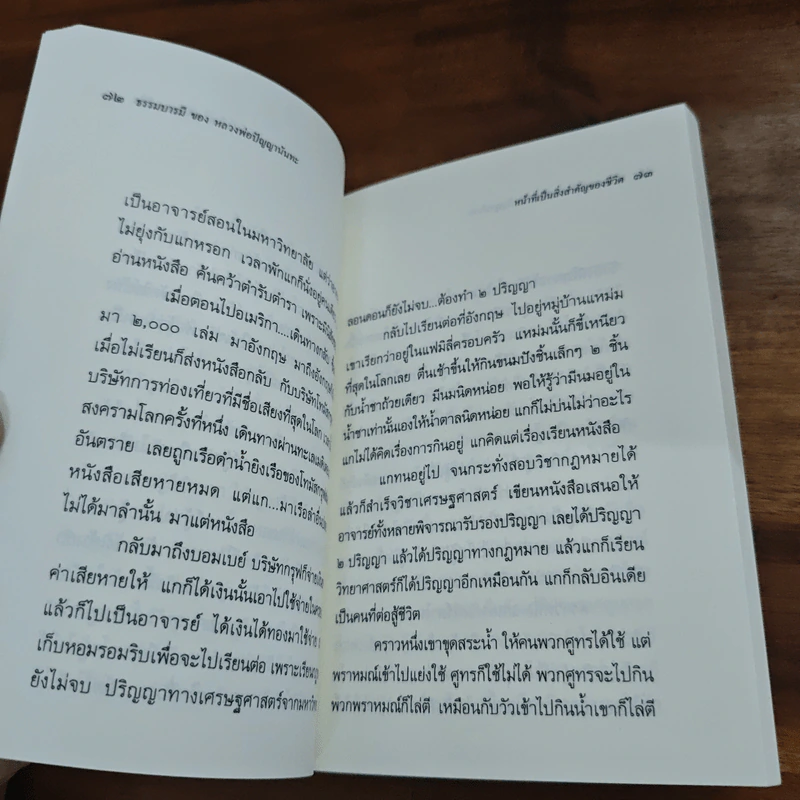 ๗๒ ธรรมบารมี ของ หลวงพ่อปัญญานันทะ
เป็นอาจารย์สอนในมหาวิทยาลัย
ไม่ยุ่งกับแกหรอก เวลาพักแกก็นั่งอยู่
อ่านหนังสือ ค้นคว้าตำรับตำรา
เมื่อตอนไปอเมริกา....เดินทางกลับ
มา ๒,๐๐๐ เล่ม มาอังกฤษ
เมื่อไม่เรียนก็ส่งหนังสือกลับ กับบริษัท
บริษัทการท่องเที่ยวที่มีชื่อเสียงที่สุดในโลก
สงครามโลกครั้งที่หนึ่ง เดินทางผ่านทะเล
อันตราย เลยถูกเรือดำน้ำยิงเรือของ
หนังสือเสียหายหมด แต่แก...มาเรือลำอื่น
ไม่ได้มาลำนั้น มาแต่หนังสือ
กลับมาถึงบอมเบย์ บริษัทกรุฟก็จ่าย
ค่าเสียหายให้ แกก็ได้เงินนั้นเอาไปใช้จ่าย
แล้วก็ไปเป็นอาจารย์ ได้เงินได้ทองมาใช้จ่าย
เก็บหอมรอมริบเพื่อจะไปเรียนต่อ
ยังไม่จบ ปริญญาทางเศรษฐศาสตร์จาก
หน้าที่เป็นสิ่งสำคัญของชีวิต ๗๓
ลอนดอนก็ยังไม่จบ...ต้องทำ ๒ ปริญญา
กลับไปเรียนต่อที่อังกฤษ ไปอยู่หมู่บ้านแหม่ม
เขาเรียกว่าอยู่ในแฟมิลี่ครอบครัว แหม่มนั้นก็ขี้เหนียว
ที่สุดในโลกเลย ตื่นเช้าขึ้นให้กินขนมปังชิ้นเล็กๆ ๒ ชิ้น
กับน้ำชาถ้วยเดียว มีนมนิดหน่อย พอให้รู้ว่ามีนมอยู่ใน
น้ำชาเท่านั้นเองให้น้ำตาลนิดหน่อย แกก็ไม่บ่นไม่ว่าอะไร
แกไม่ได้คิดเรื่องการกินอยู่ แกคิดแต่เรื่องเรียนหนังสือ
แกทนอยู่ไป จนกระทั่งสอบวิชากฎหมายได้
แล้วก็สำเร็จวิชาเศรษฐศาสตร์ เขียนหนังสือเสนอให้
อาจารย์ทั้งหลายพิจารณารับรองปริญญา เลยได้ปริญญา
๒ ปริญญา แล้วได้ปริญญาทางกฎหมาย แล้วแกก็เรียน
วิทยาศาสตร์ก็ได้ปริญญาอีกเหมือนกัน แกก็กลับอินเดีย
เป็นคนที่ต่อสู้ชีวิต
คราวหนึ่งเขาขุดสระน้ำ ให้คนพวกศูทรได้ใช้ แต่
พราหมณ์เข้าไปแย่งใช้ ศูทรก็ใช้ไม่ได้ พวกศูทรจะไปกิน
พวกพราหมณ์ก็ไล่ตี เหมือนกับวัวเข้าไปกินน้ำเขาก็ไล่ตี